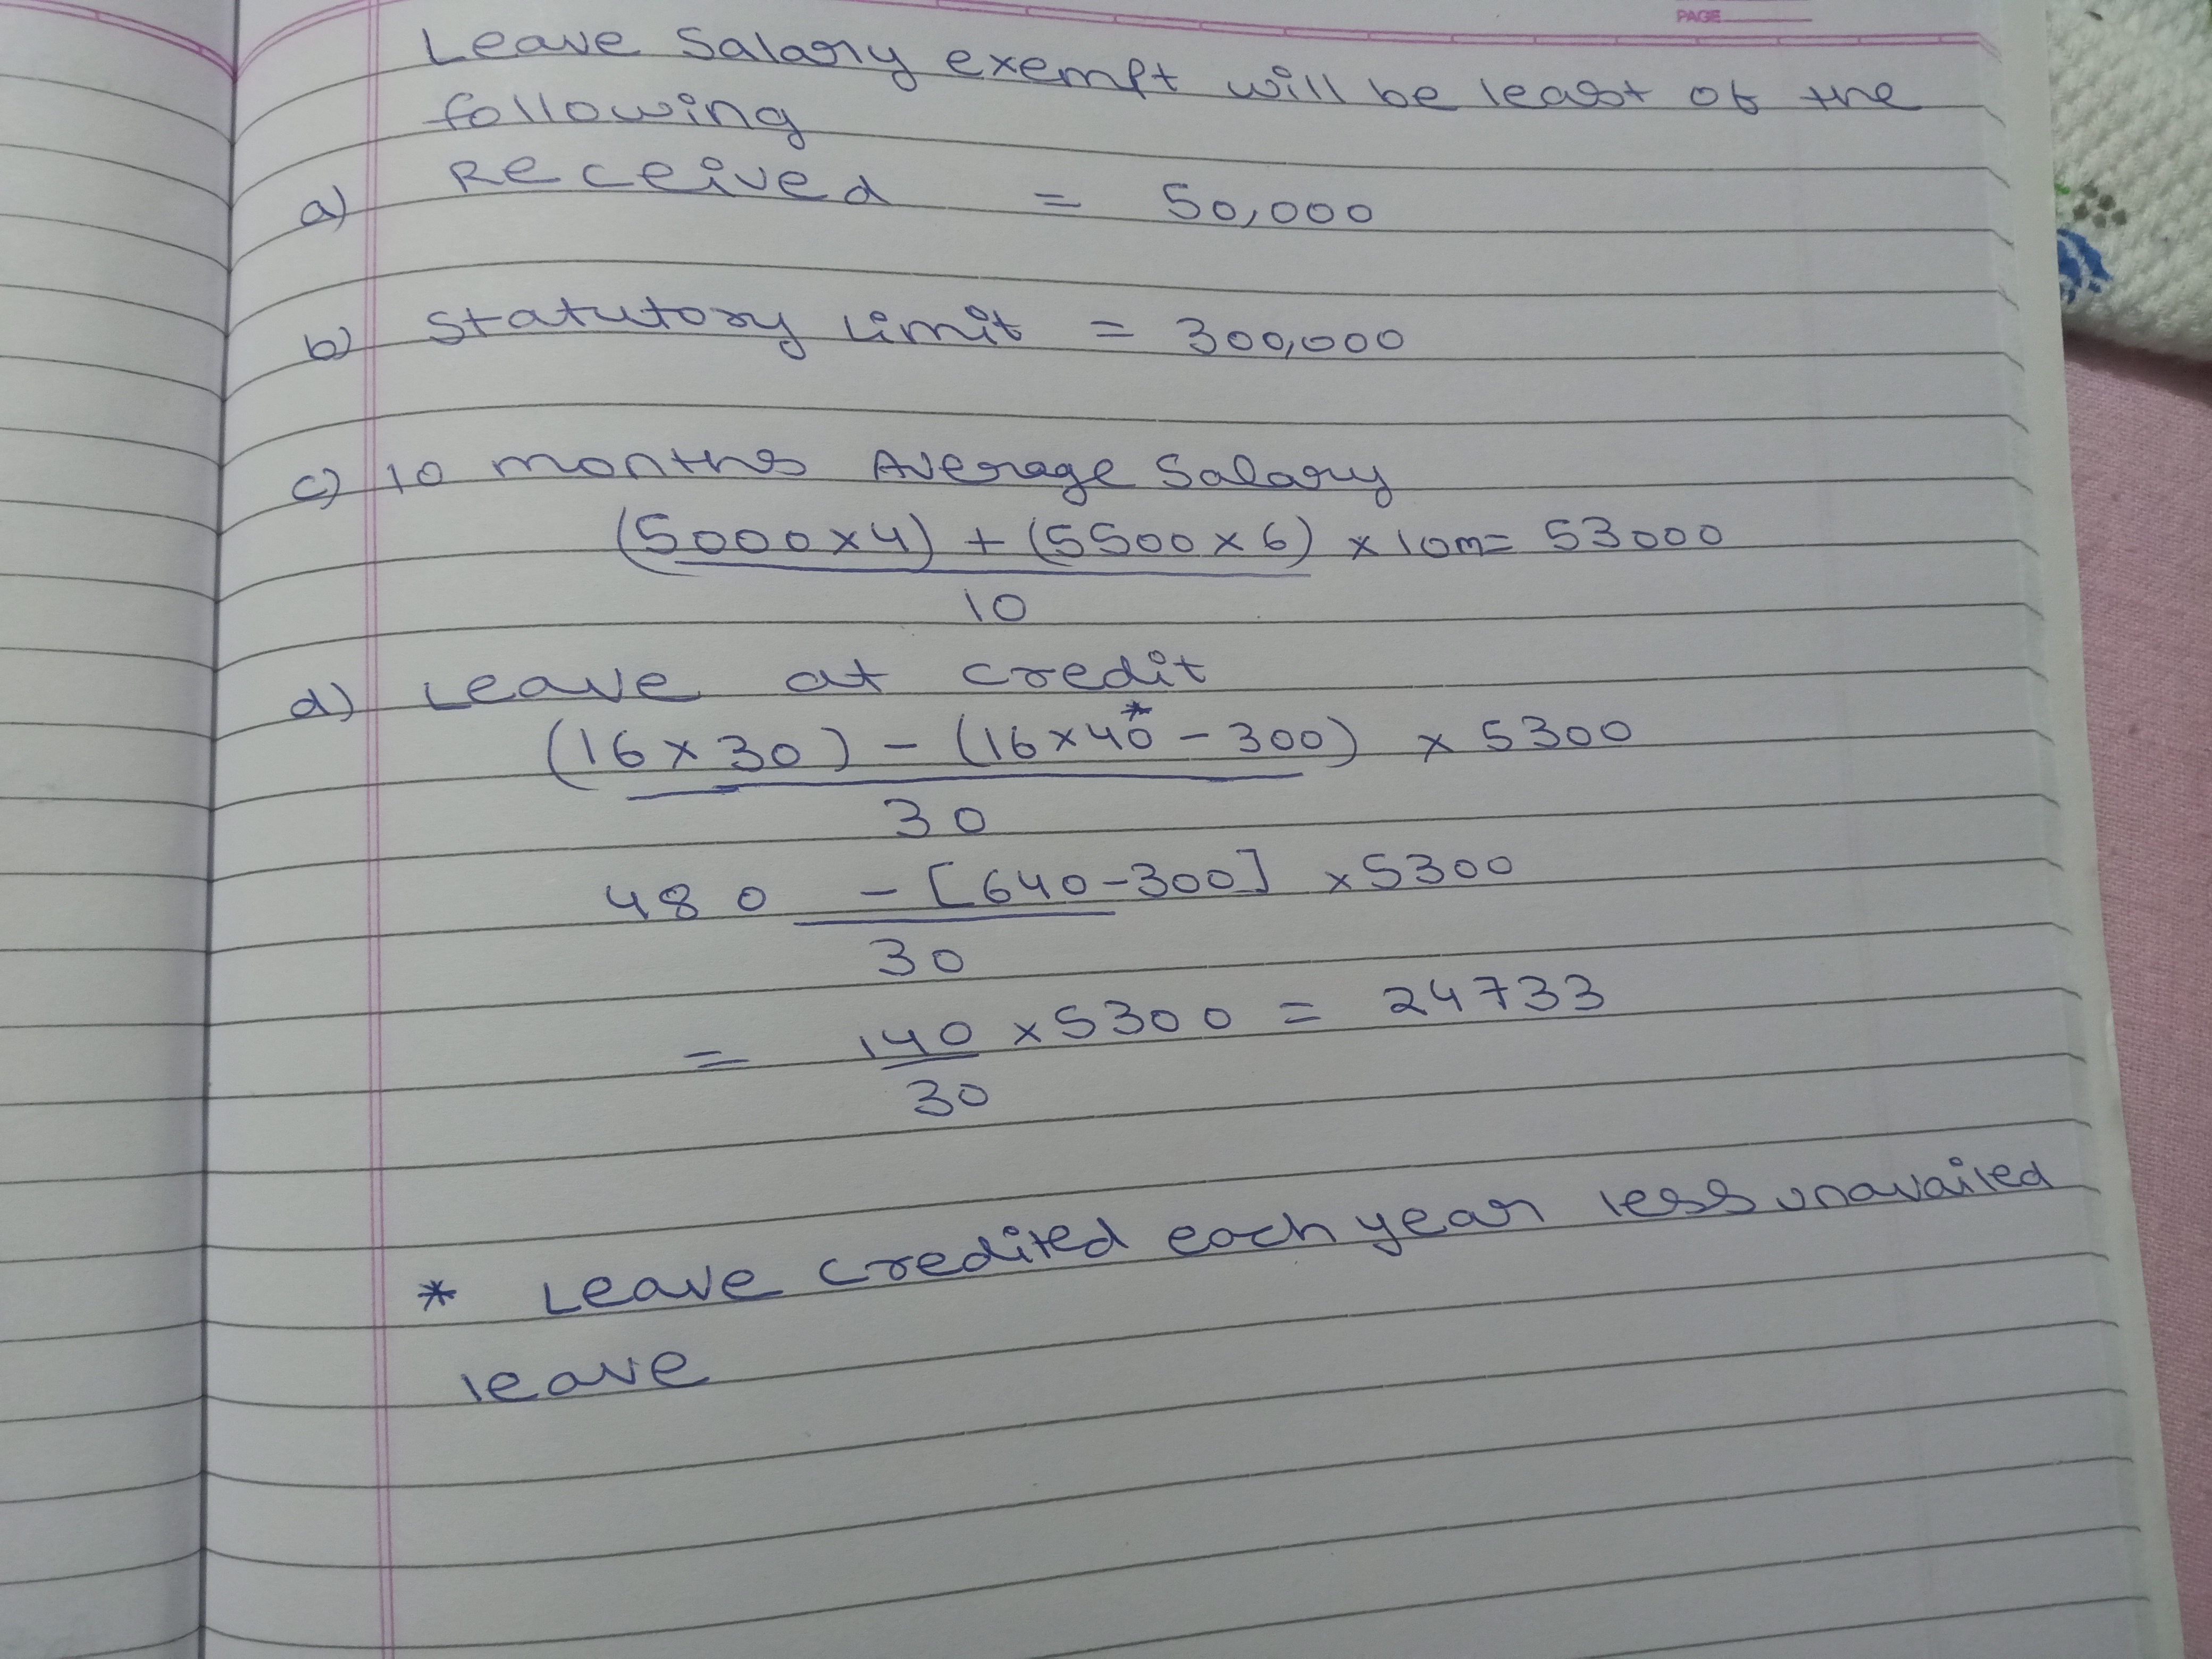 PAGE
Leave Salary exempt will be least of the
following
a) Received = 50,000
b) Statutory Limit = 300,000
c) 10 months Average Salary
(5000 x 4) + (5500 x 6) x 10m = 53000
10
d) Leave at credit
(16 x 30) - (16 x 40* - 300) x 5300
30
480 - [640 - 300] x 5300
30
= 140 x 5300 = 24733
30
* Leave credited each year less unavailed
leave